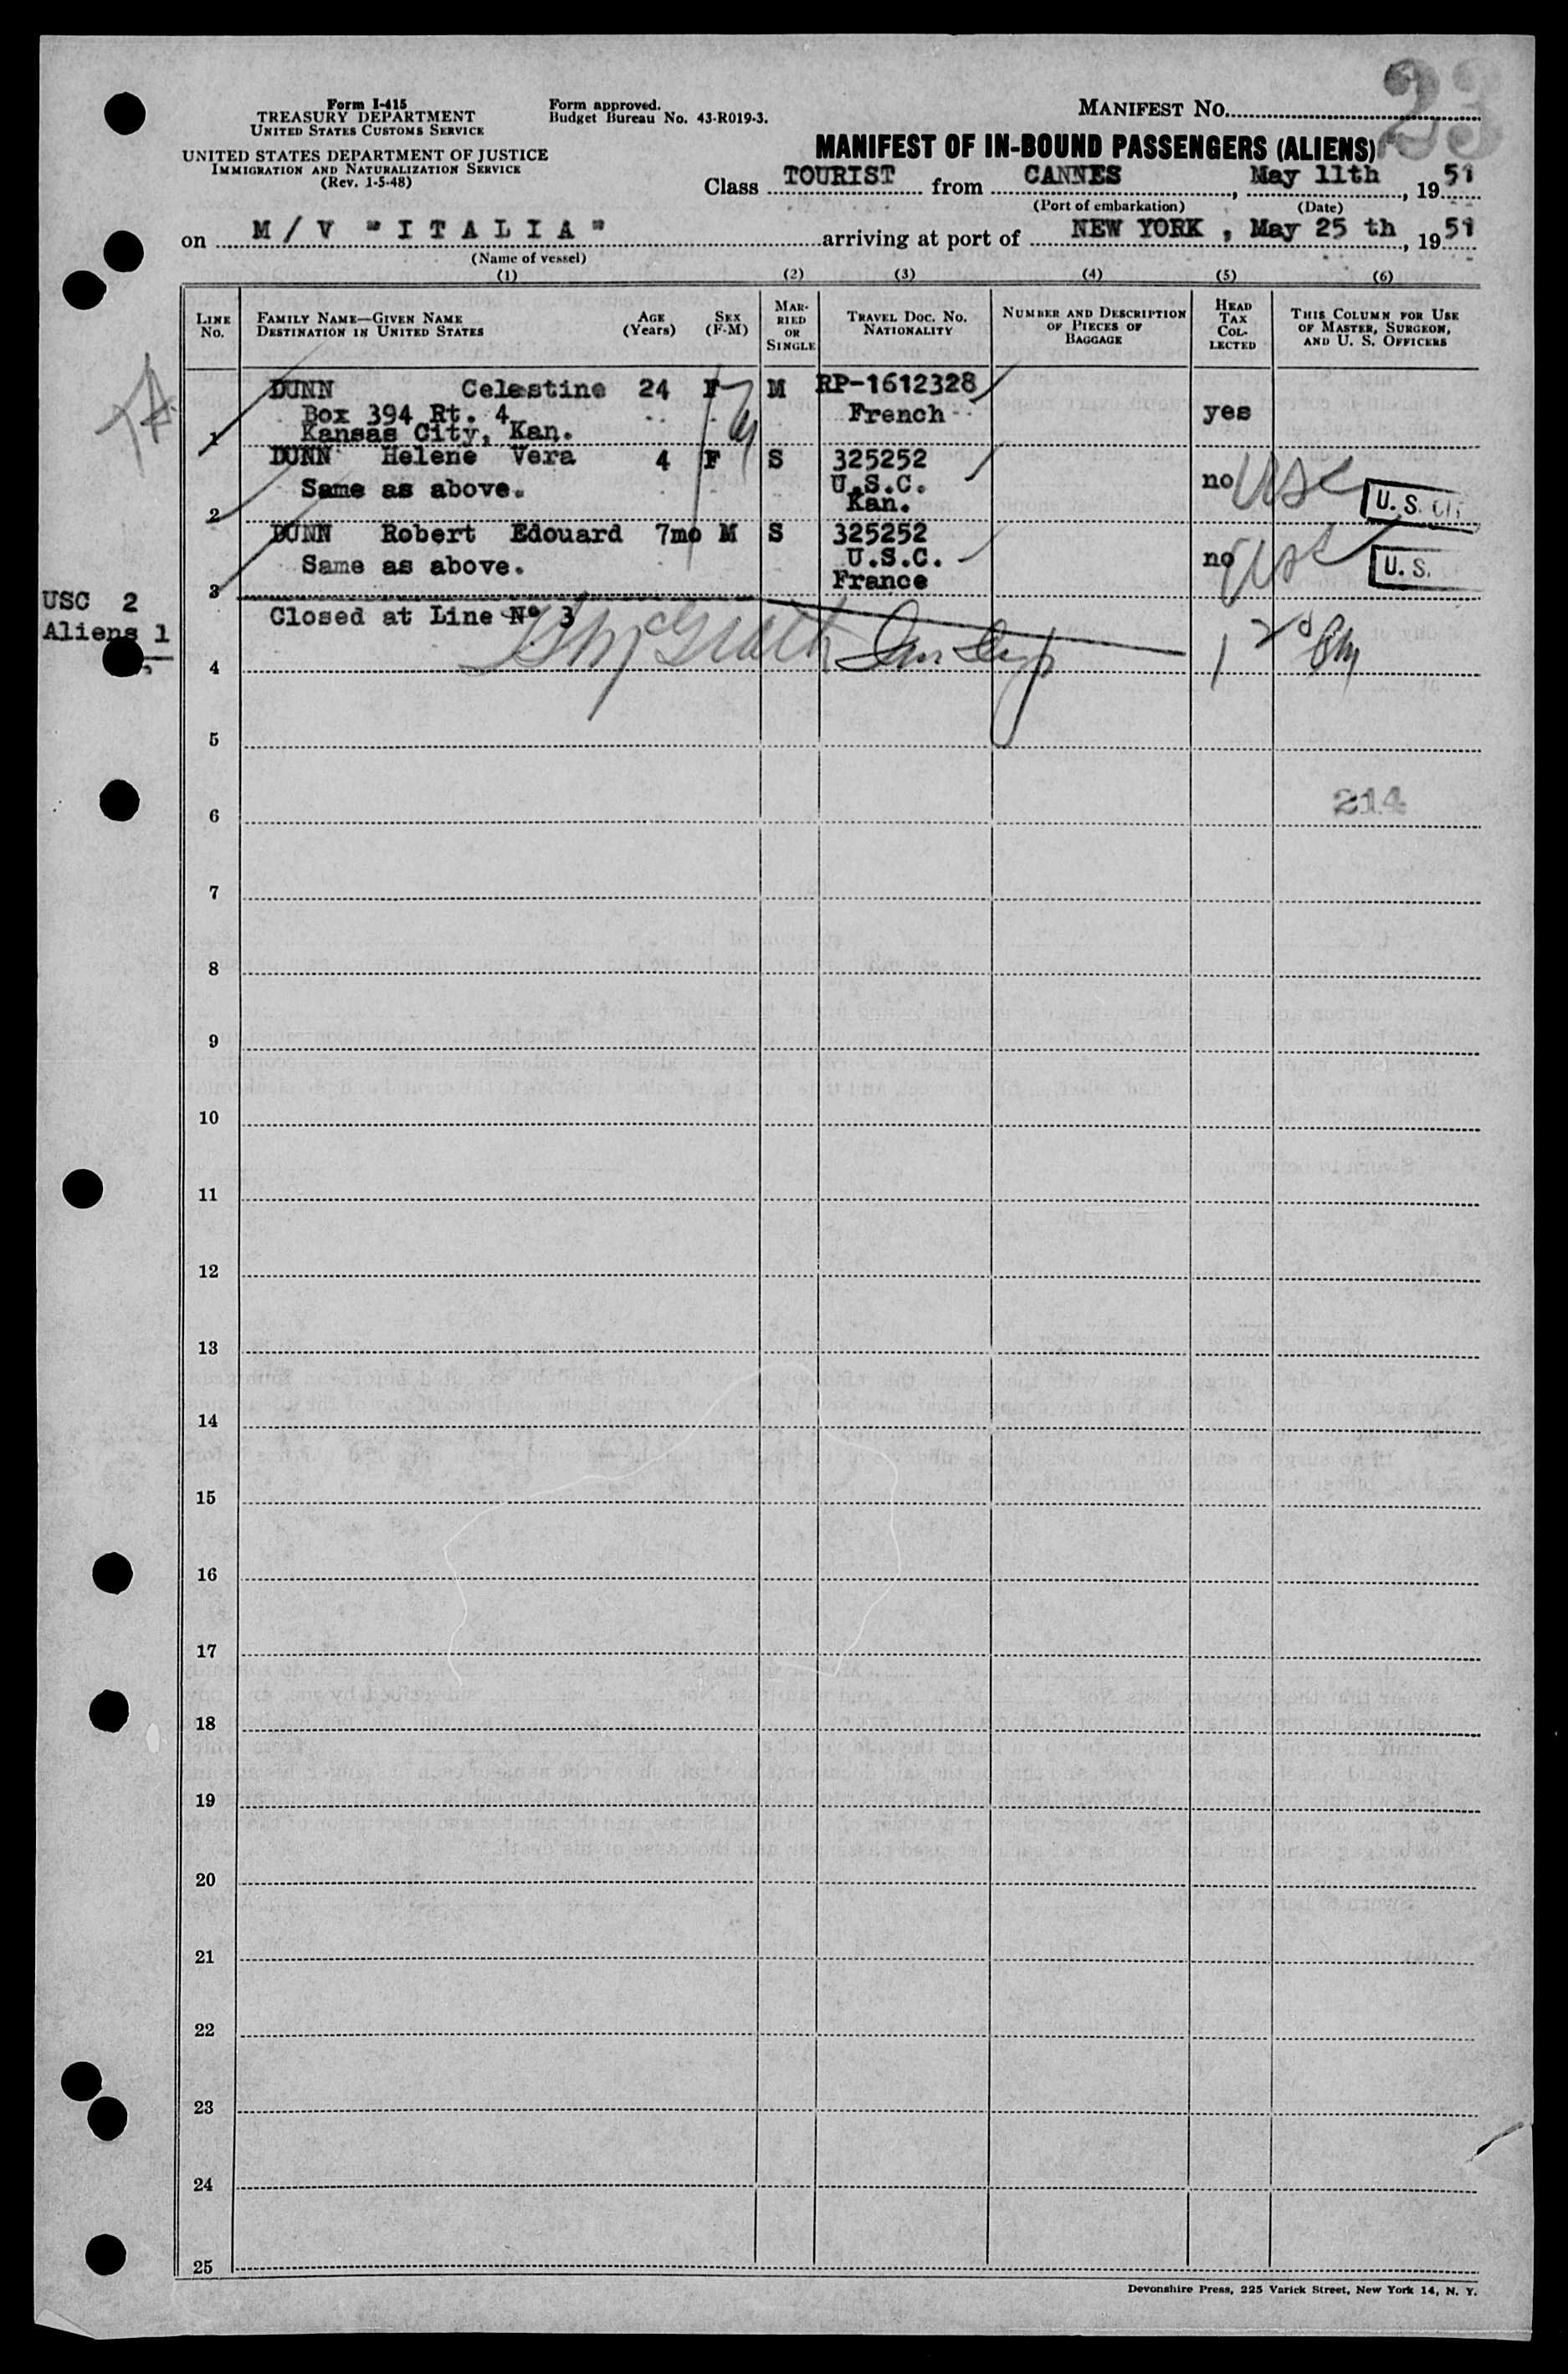 23
Form I-415
TREASURY DEPARTMENT
UNITED STATES CUSTOMS SERVICE
UNITED STATES DEPARTMENT OF JUSTICE
IMMIGRATION AND NATURALIZATION SERVICE
(Rev. 1-5-48)
Form approved.
Budget Bureau No. 43-R019-3.
MANIFEST No.
MANIFEST OF IN-BOUND PASSENGERS (ALIENS)
Class TOURIST from CANNES, May 11th, 1951
(Port of embarkation) (Date)
on M/V "ITALIA" arriving at port of NEW YORK, May 25 th, 1951
(Name of vessel)
(1) (2) (3) (4) (5) (6)
LINE No. FAMILY NAME—GIVEN NAME DESTINATION IN UNITED STATES AGE (Years) SEX (F-M) MARRIED OR SINGLE TRAVEL DOC. No. NATIONALITY NUMBER AND DESCRIPTION OF PIECES OF BAGGAGE HEAD TAX COLLECTED THIS COLUMN FOR USE OF MASTER, SURGEON, AND U. S. OFFICERS
DUNN Celestine 24 F M RP-1612328
Box 394 Rt. 4 French yes
1 Kansas City, Kan.
DUNN Helene Vera 4 F S 325252
Same as above. U.S.C. no USC U.S.
2 Kan.
DUNN Robert Edouard 7mo M S 325252
Same as above. U.S.C. no USC U.S.
3 France
USC 2
Aliens 1
Closed at Line Nº 3
4
5
214
6
7
8
9
10
11
12
13
14
15
16
17
18
19
20
21
22
23
24
25
Devonshire Press, 225 Varick Street, New York 14, N. Y.